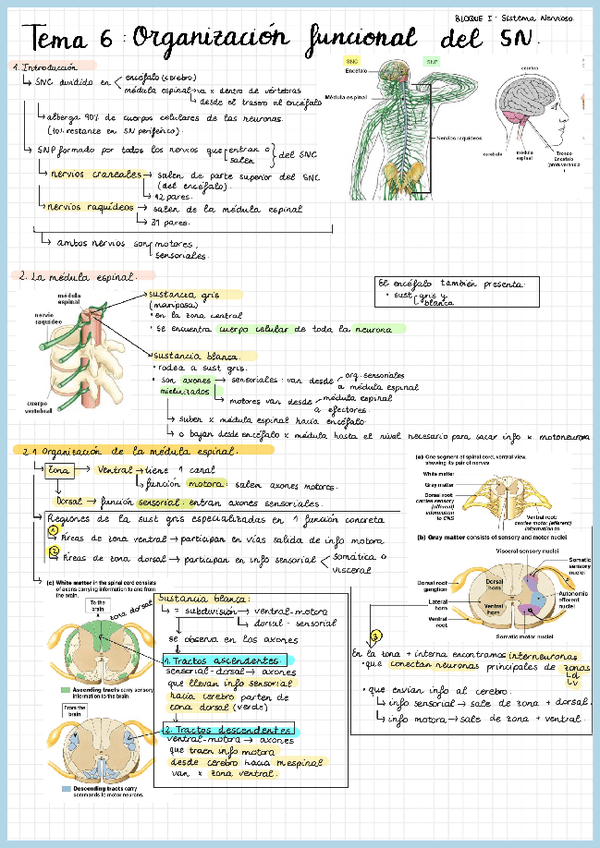 BLOQUE I: Sistema Nervioso
Tema 6: Organización funcional del SN.
1. Introducción
↳ SNC dividido en
encéfalo (cerebro)
médula espinal → va x dentro de vértebras
desde el trasero al encéfalo
↳ alberga 90% de cuerpos celulares de las neuronas.
(10% restante en SN periférico).
↳ SNP formado por todos los nervios que entran o salen } del SNC
↳ nervios craneales → salen de parte superior del SNC
(del encéfalo).
↳ 12 pares.
↳ nervios raquídeos → salen de la médula espinal
↳ 31 pares.
↳ ambos nervios son motores,
sensoriales.
SNC
SNP
Encéfalo
Médula espinal
Nervios raquídeos
cerebro
cerebelo
médula espinal
Tronco Encéfalo
2. La médula espinal.
médula espinal
nervio raquídeo
cuerpo vertebral
sustancia gris
(mariposa)
• en la zona central
• se encuentra cuerpo celular de toda la neurona
El encéfalo también presenta:
• sust gris y blanca
sustancia blanca.
• rodea a sust gris.
• son axones mielinizados
→ sensoriales: van desde org. sensoriales
a médula espinal
motores van desde médula espinal
a efectores.
↳ suben x médula espinal hacia encéfalo
↳ o bajan desde encéfalo x médula hasta el nivel necesario para sacar info x motoneurona
2.1 Organización de la médula espinal.
Zona → Ventral → tiene 1 canal
función motora: salen axones motores.
Dorsal → función sensorial: entran axones sensoriales.
Regiones de la sust gris especializadas en 1 función concreta
1 Áreas de zona ventral → participan en vías salida de info motora
2 Áreas de zona dorsal → participan en info sensorial
somática o
visceral
(a) One segment of spinal cord, ventral view,
showing its pair of nerves
White matter
Gray matter
Dorsal root:
carries sensory
(afferent)
information
to CNS
Ventral root:
carries motor (efferent)
information to
(b) Gray matter consists of sensory and motor nuclei
Visceral sensory nuclei
Somatic sensory nuclei
Dorsal root ganglion
Dorsal horn
Lateral horn
Ventral horn
Ventral root
Autonomic efferent nuclei
Somatic motor nuclei
(c) White matter in the spinal cord consists
of axons carrying information to and from
the brain.
To the brain
zona dorsal
Ascending tracts carry sensory
information to the brain
From the brain
Descending tracts carry
commands to motor neurons.
Sustancia blanca:
↳ = subdivisión → ventral-motora
↳ dorsal - sensorial
se observa en los axones
1. Tractos ascendentes:
sensorial-dorsal → axones
que llevan info sensorial
hacia cerebro parten de
zona dorsal (verde)
2. Tractos descendentes:
ventral-motora → axones
que traen info motora
desde cerebro hacia m espinal
van x zona ventral.
3
En la zona + interna encontramos interneuronas
• que conectan neuronas principales de zonas
↳ d
↳ v
• que envían info al cerebro.
↳ info sensorial → sale de zona + dorsal.
↳ info motora → sale de zona + ventral.